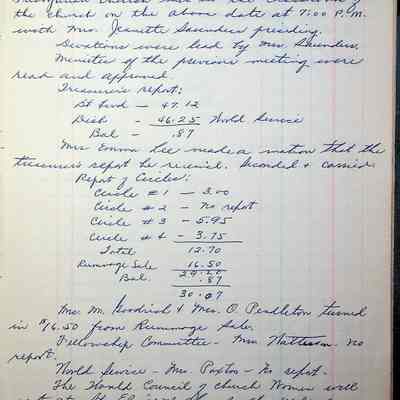 the church on the above date at 7:00 P.M.
with Mrs. Jeanette Saunders presiding.
Devotions were lead by Mrs Saunders.
Minutes of the previous meeting were
read and approved.
Treasurer's report:
Bt forwd - 47.12
Disb - 46.25 World Service
Bal - .87
Mrs Emma Lee made a motion that the
treasurer's report be received. Seconded & carried.
Report of Circles:
Circle #1 - 3.00
Circle #2 - No report
Circle #3 - 5.95
Circle #4 - 3.75
Total 12.70
Rummage Sale 16.50
29.20
Bal. .87
30.07
Mrs. M. Goodrich & Mrs. O. Pendleton turned
in $16.50 from Rummage Sale.
Fellowship Committee - Mrs. Watterson - No
report.
World Service - Mrs. Paxton - No report.
The World Council of Church Women will